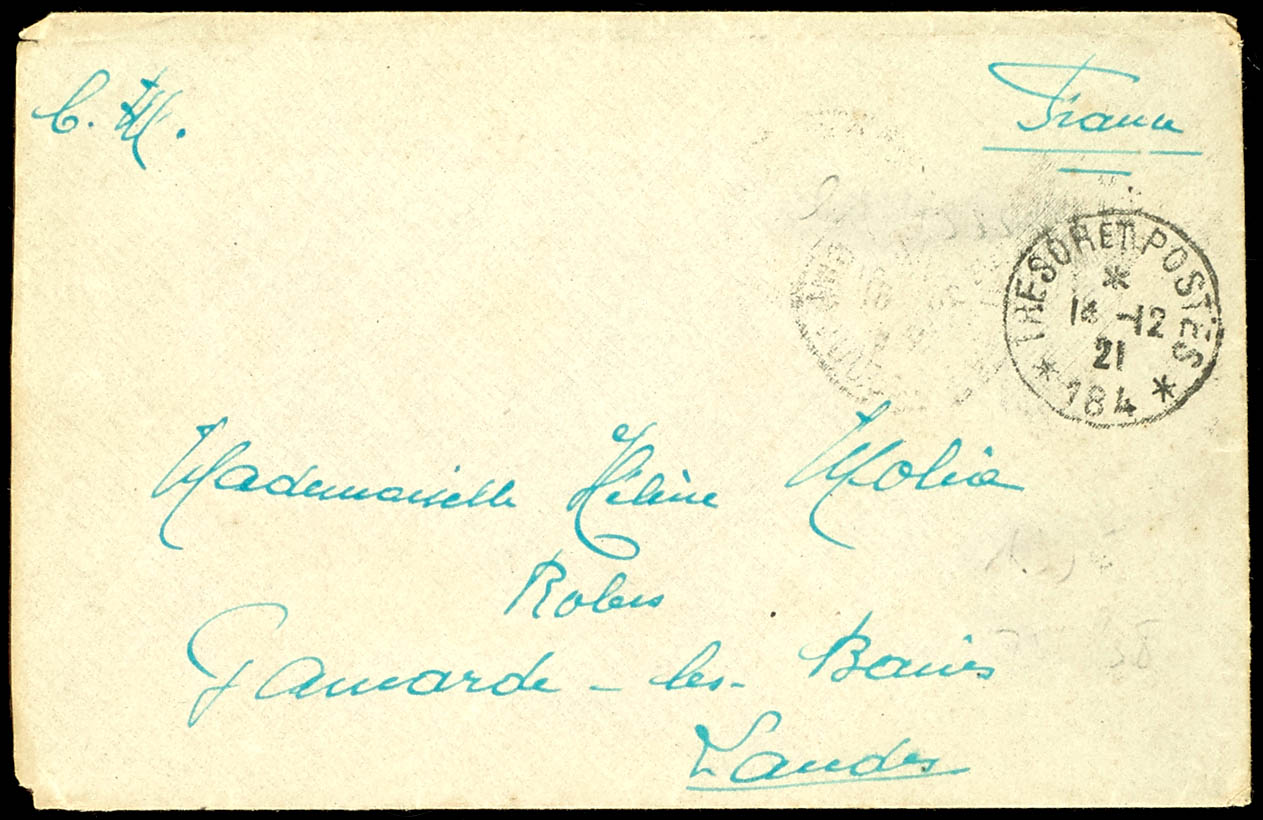 France
TRESOR ET POSTES
*
14 -12
21
* 184 *
Mademoiselle Hélène Molia
Robes
Gamarde - les - Bains
Landes